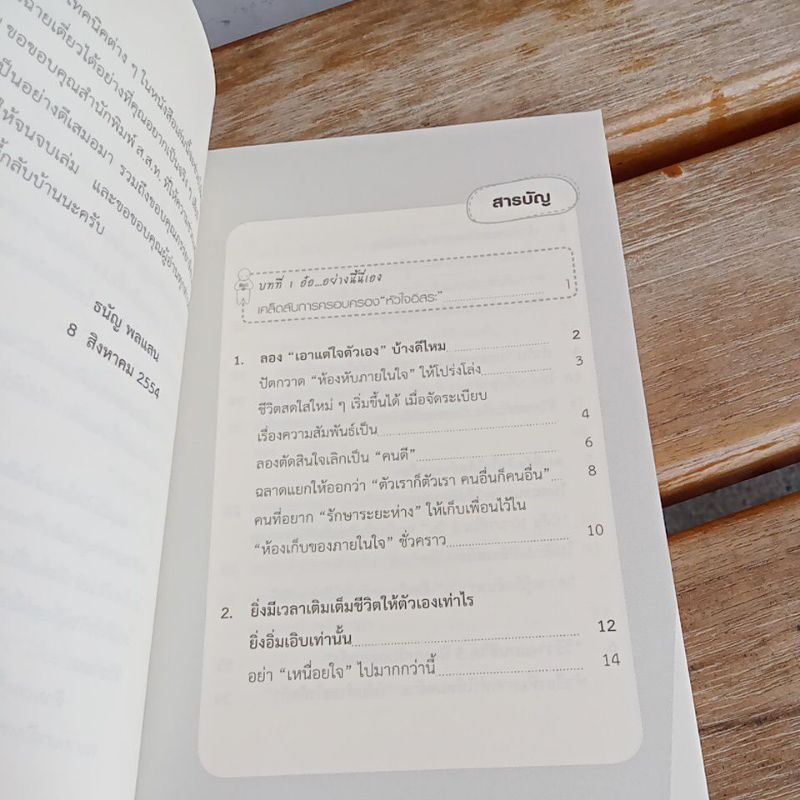 เทคนิคต่าง ๆ ในหนังสือเล่มนี้
ฉายเดี่ยวได้อย่างที่คุณอยากเป็นจริง ๆ
ขอขอบคุณสำนักพิมพ์ ส.ส.ท. ที่ให้
เป็นอย่างดีเสมอมา รวมถึงขอบคุณ
ให้จนจบเล่ม และขอขอบคุณผู้อ่านทุก
กลับบ้านนะครับ
ธนัญ พลแสน
8 สิงหาคม 2554
สารบัญ
บทที่ 1 อ๋อ...อย่างนี้นี่เอง
เคล็ดลับการครอบครอง “หัวใจอิสระ” 1
1. ลอง “เอาแต่ใจตัวเอง” บ้างดีไหม 2
ปัดกวาด “ห้องหับภายในใจ” ให้โปร่งโล่ง 3
ชีวิตสดใสใหม่ ๆ เริ่มขึ้นได้ เมื่อจัดระเบียบ
เรื่องความสัมพันธ์เป็น 4
ลองตัดสินใจเลิกเป็น “คนดี” 6
ฉลาดแยกให้ออกว่า “ตัวเราก็ตัวเรา คนอื่นก็คนอื่น” 8
คนที่อยาก “รักษาระยะห่าง” ให้เก็บเพื่อนไว้ใน
“ห้องเก็บของภายในใจ” ชั่วคราว 10
2. ยิ่งมีเวลาเติมเต็มชีวิตให้ตัวเองเท่าไร
ยิ่งอิ่มเอิบเท่านั้น 12
อย่า “เหนื่อยใจ” ไปมากกว่านี้ 14